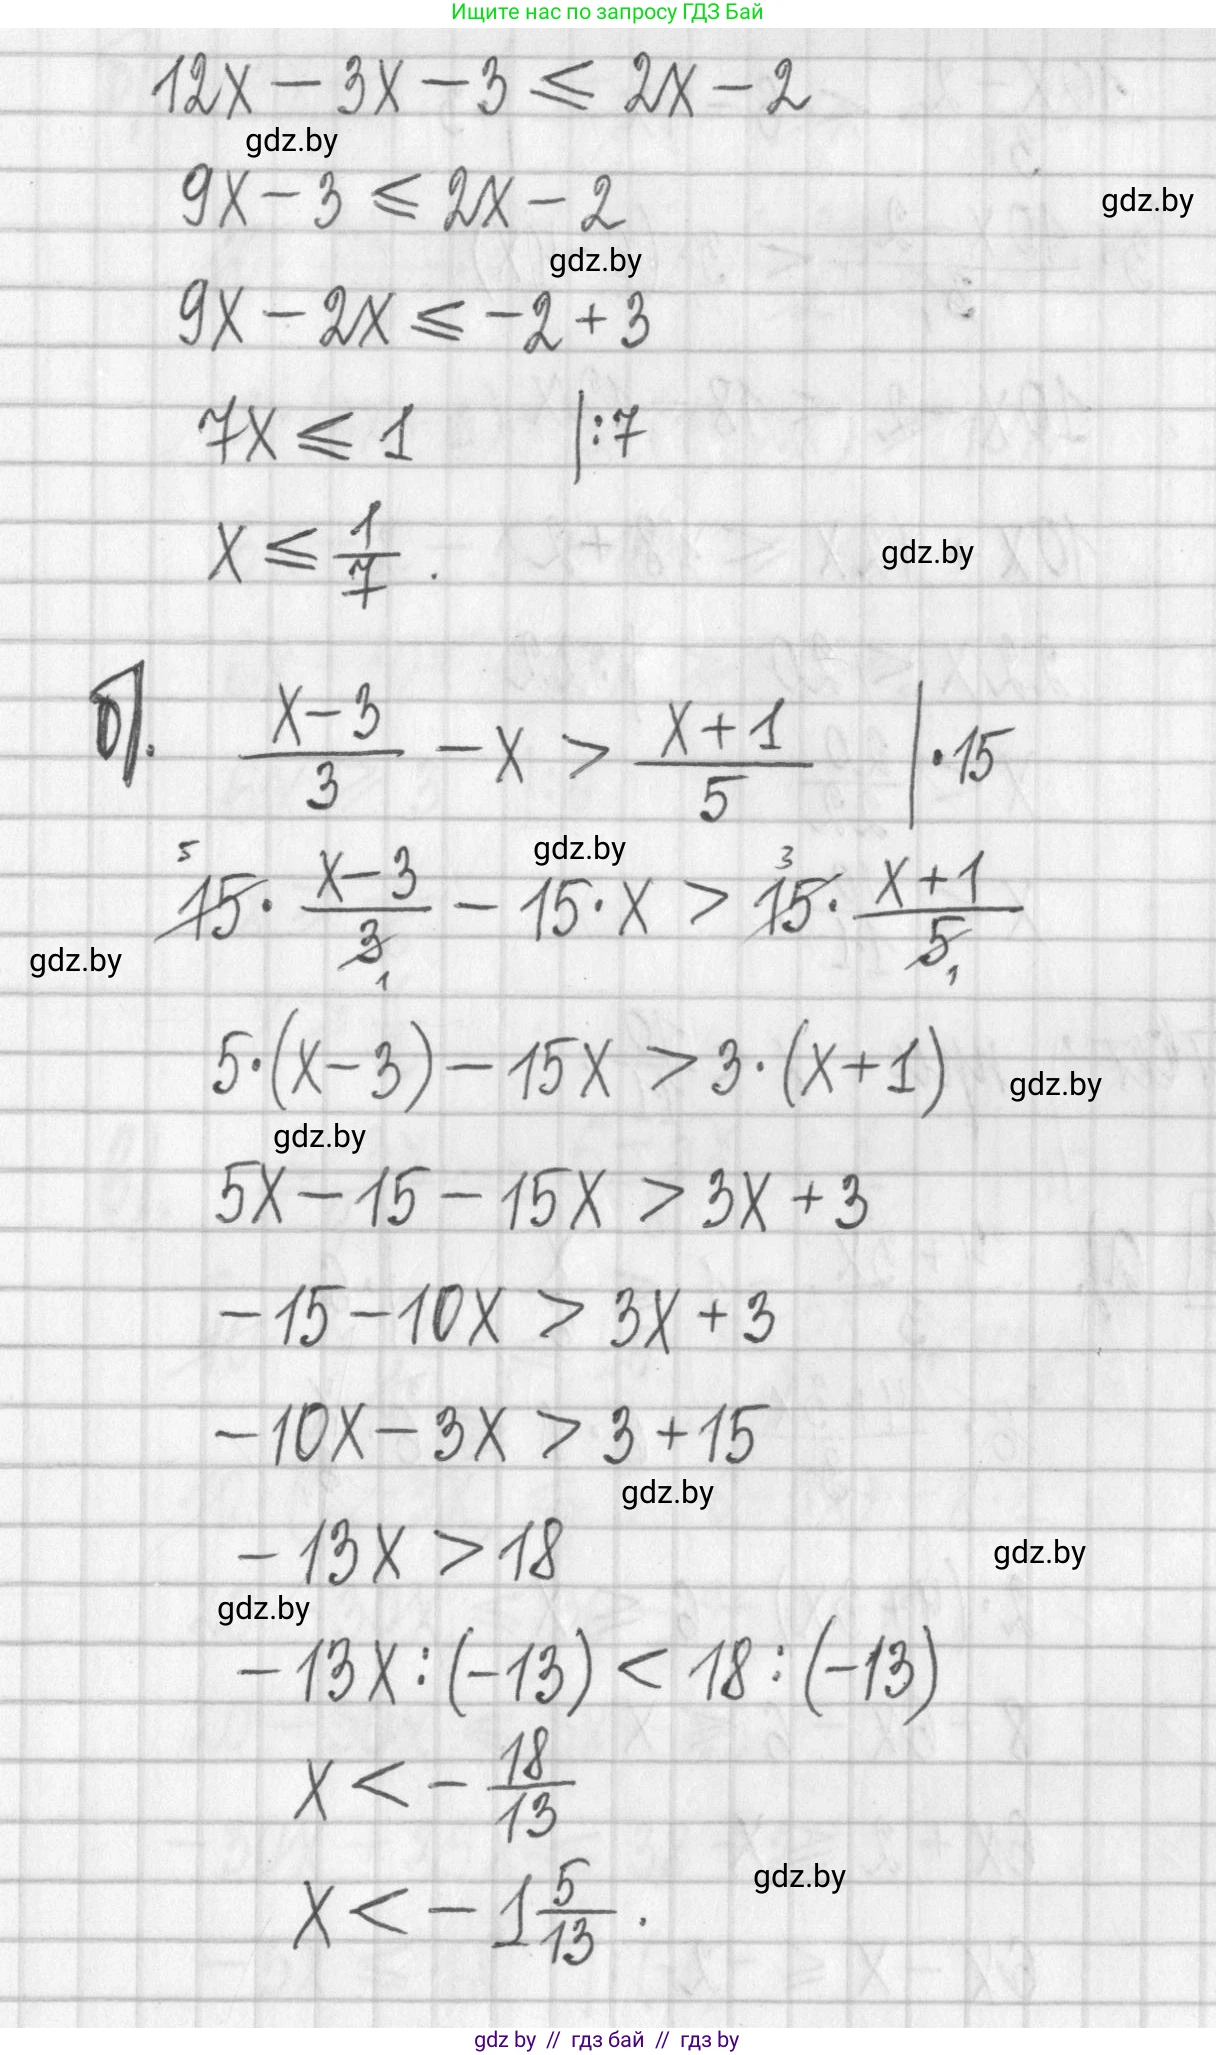 Ищите нас по запросу ГДЗ Бай
12x - 3x - 3 ≤ 2x - 2
gdz.by
9x - 3 ≤ 2x - 2
gdz.by
gdz.by
9x - 2x ≤ -2 + 3
7x ≤ 1 |:7
x ≤ 1/7.
gdz.by
б). (x-3)/3 - x > (x+1)/5 |·15
gdz.by
5 3
15 · (x-3)/3 - 15 · x > 15 · (x+1)/5
1 1
gdz.by
5·(x-3) - 15x > 3·(x+1)
gdz.by
gdz.by
5x - 15 - 15x > 3x + 3
-15 - 10x > 3x + 3
-10x - 3x > 3 + 15
gdz.by
-13x > 18
gdz.by
gdz.by
-13x : (-13) < 18 : (-13)
x < - 18/13
gdz.by
x < - 1 5/13.
gdz by // гдз бай // гдз by